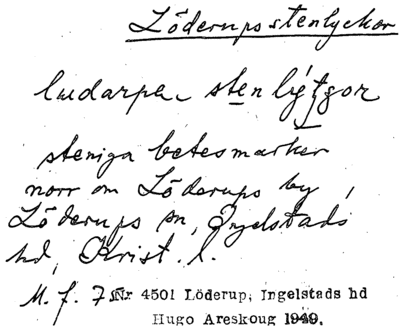 Löderups stenlyckor
ludarpa stenlýtgor
steniga betesmarker
norr om Löderups by,
Löderups sn, Ingelstads
hd, Krist. l.
M. f. 7 Nr 4501 Löderup, Ingelstads hd
Hugo Areskoug 1949.